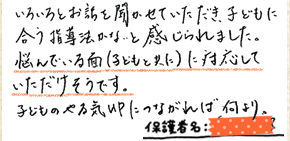 いろいろとお話を聞かせていただき、子どもに
合う指導法かな…と感じられました。
悩んでいる面(子どもと共に)に対応して
いただけそうです。
子どものやる気UPにつながれば何より。
保護者名: